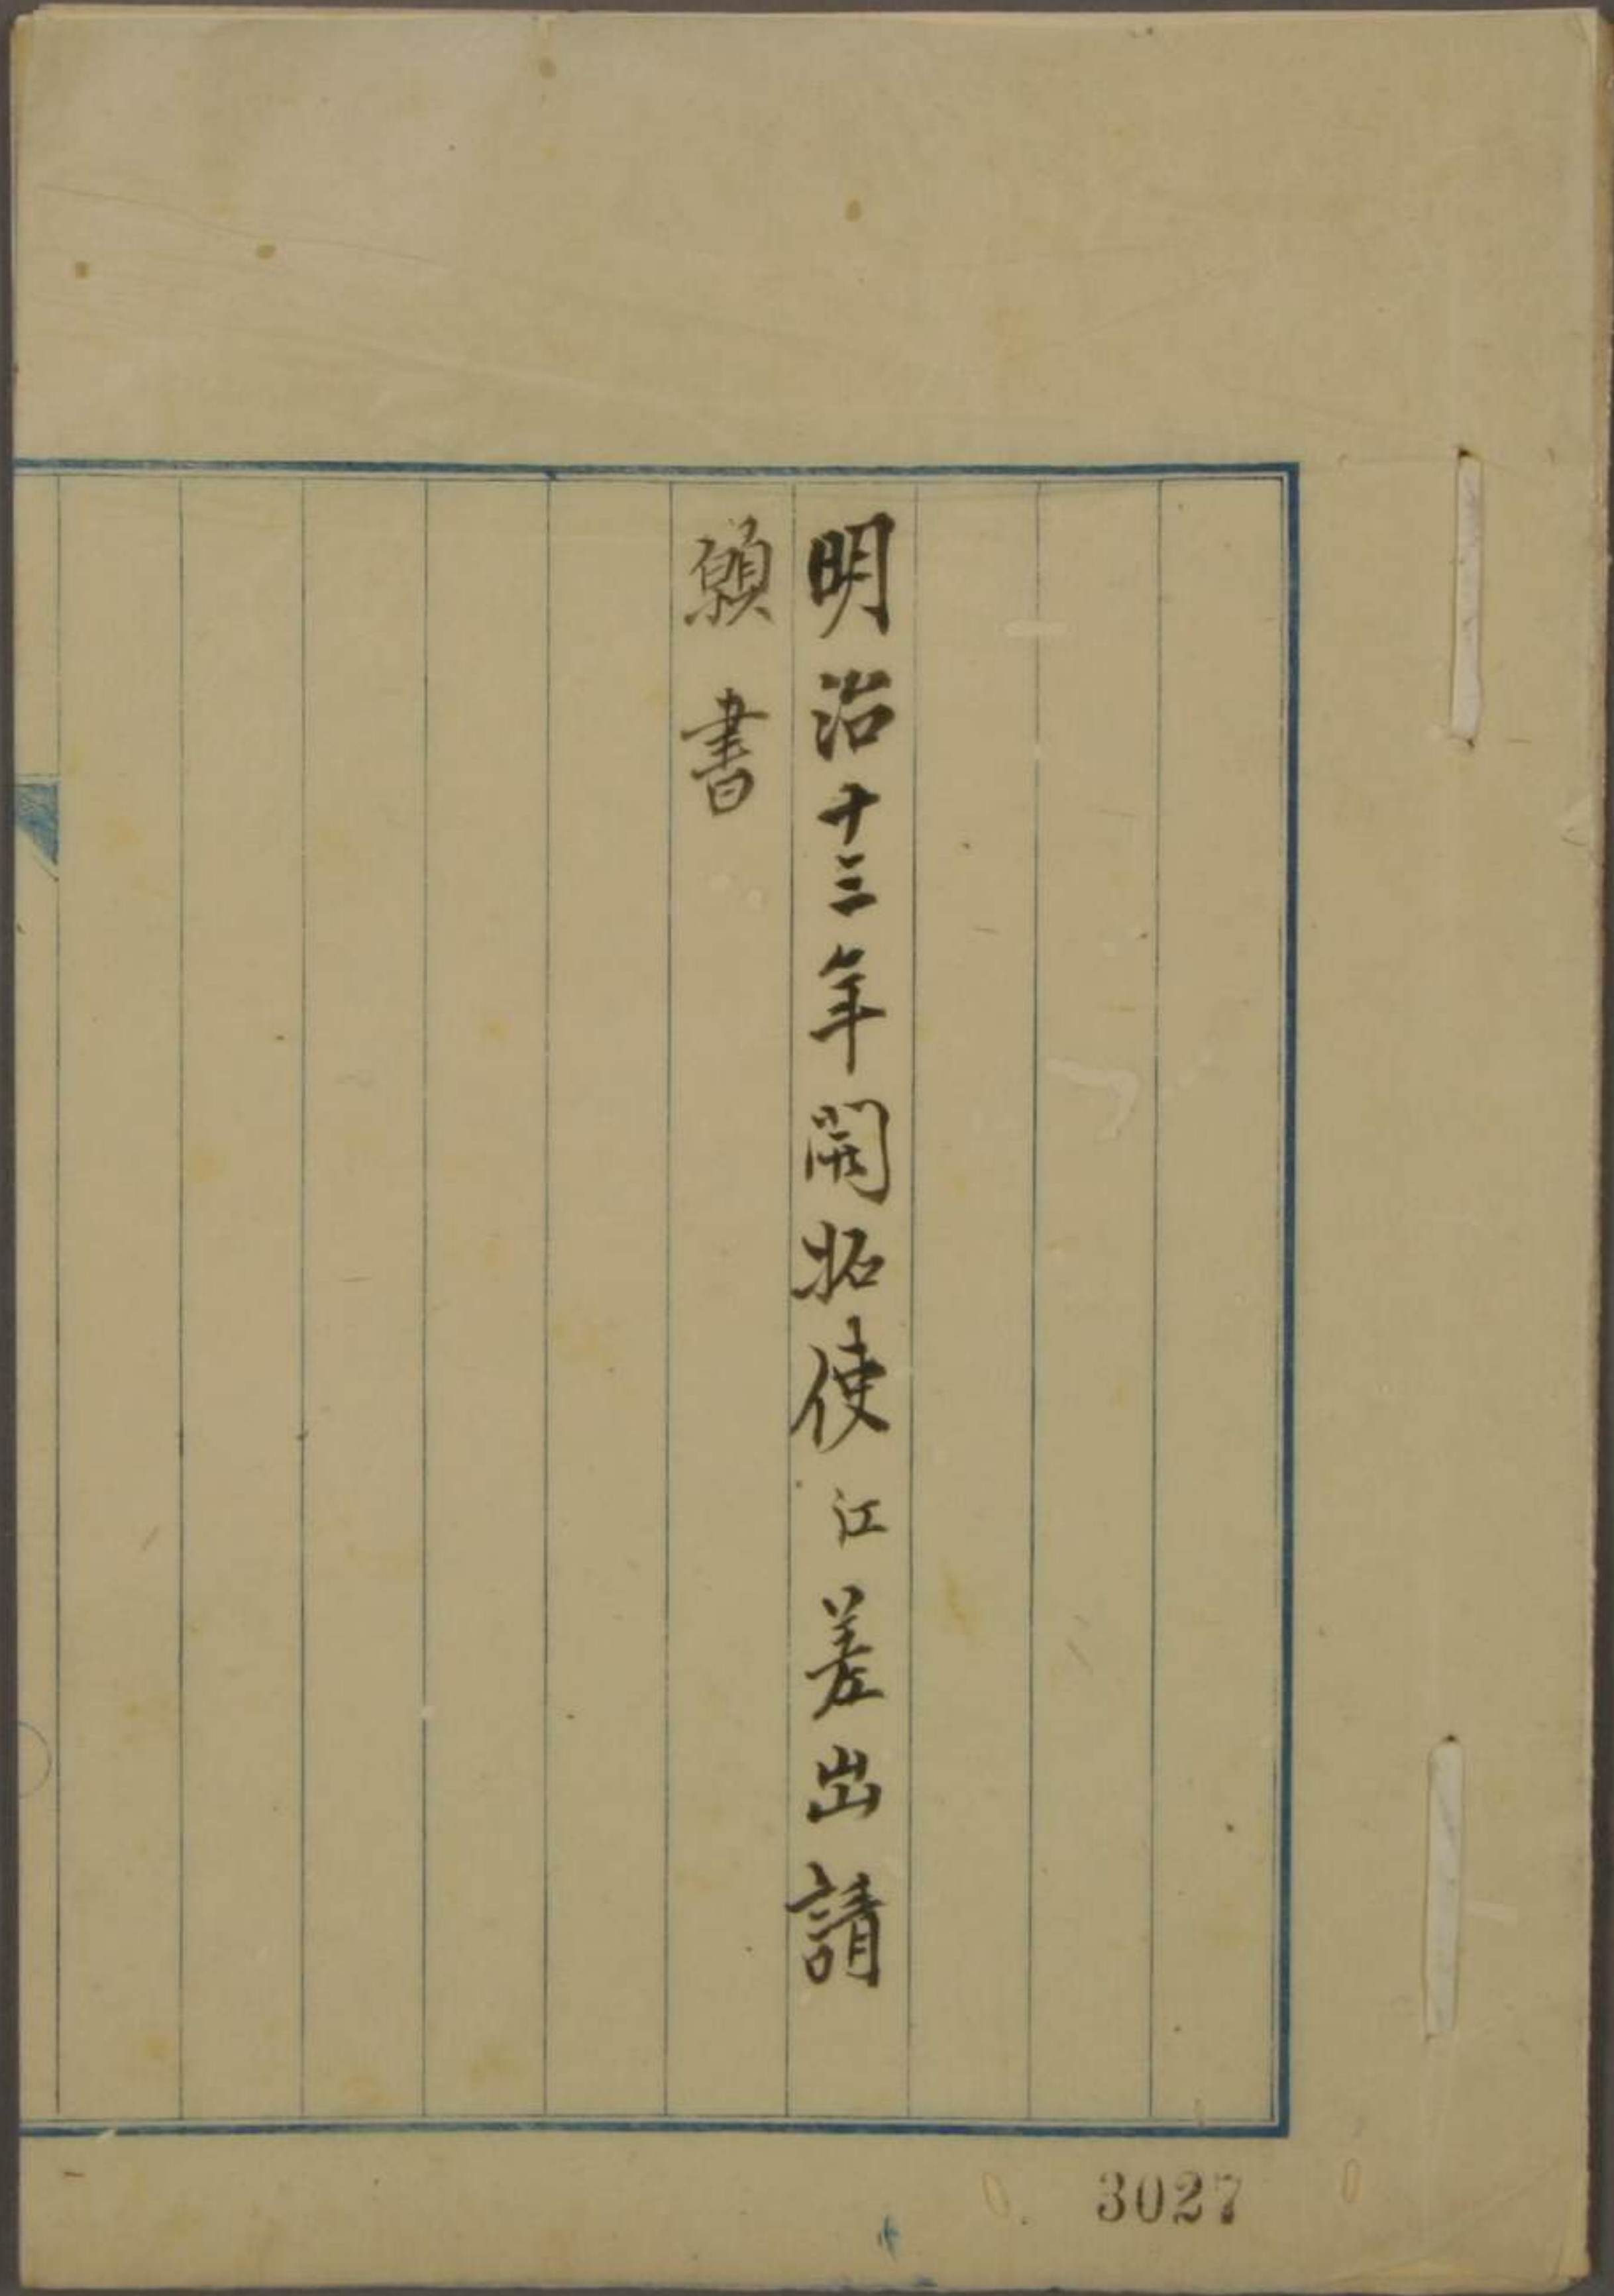 明治十三年開拓使江差出請
願書
3027